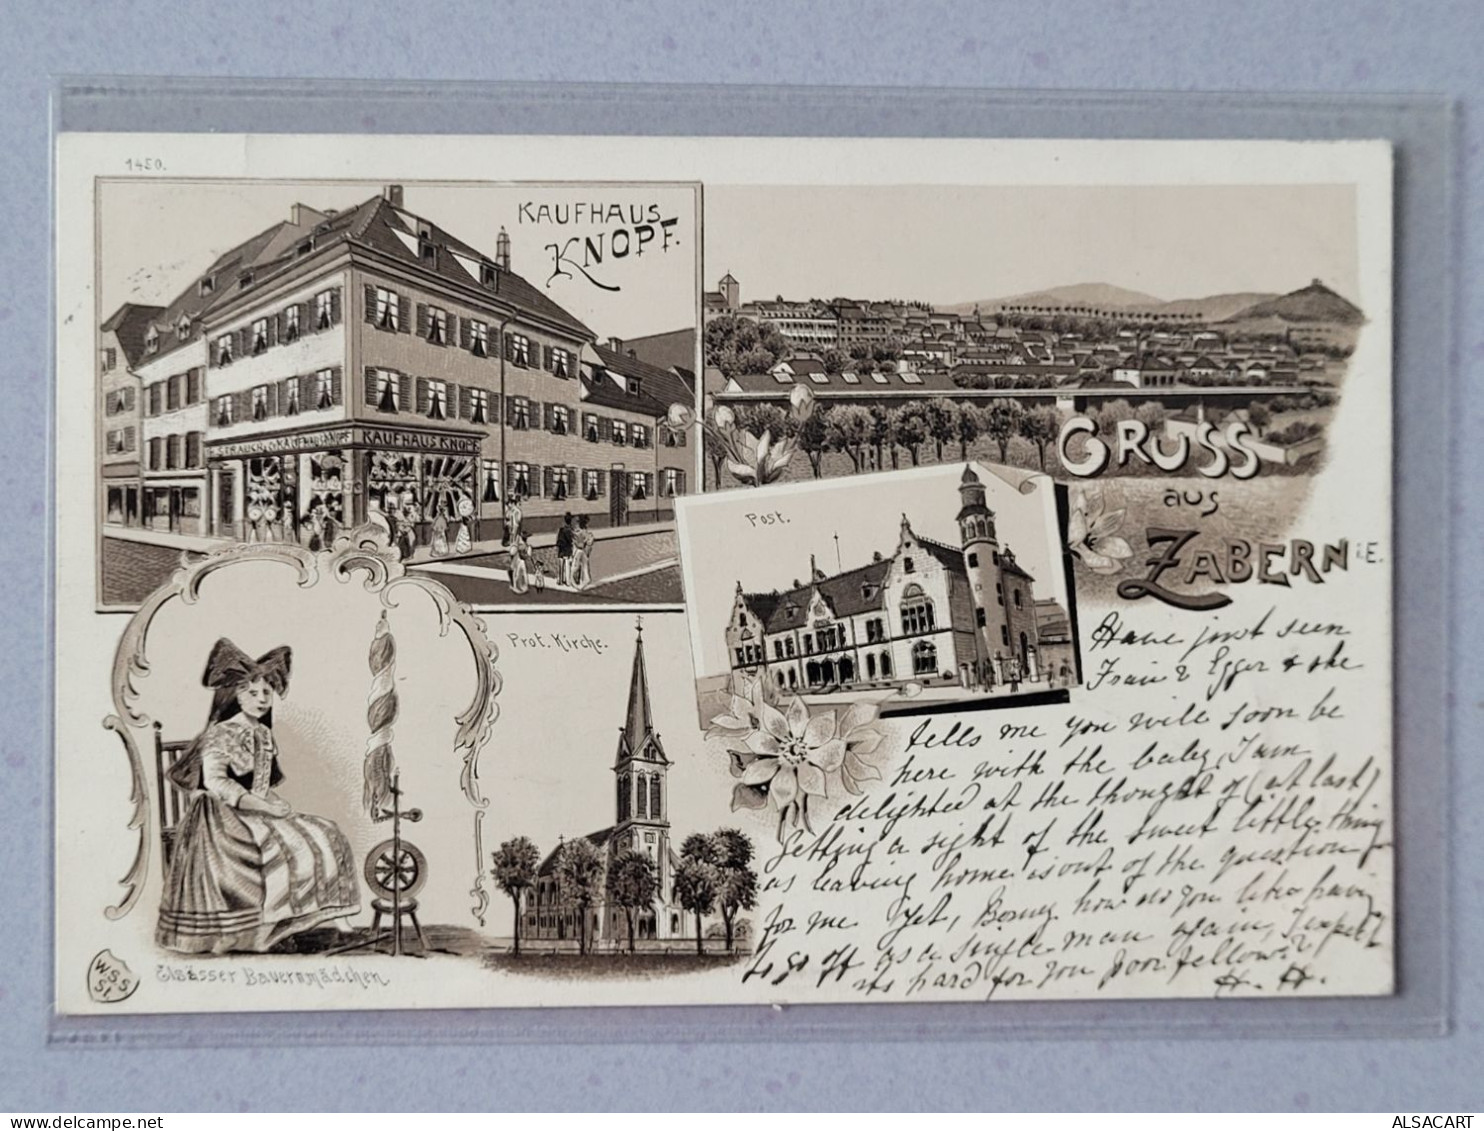 1450.
KAUFHAUS
KNOPF.
KAUFHAUS KNOPF
KAUFHAUS KNOPF
GRUSS
aus
ZABERN i.E.
Post.
Prot. Kirche.
Elsässer Bauernmädchen.
W S S
St
Have just seen
Egger & she
tells me you will soon be
here with the baby, I am
delighted at the thought of (at last)
getting a sight of the sweet little thing
as leaving home is out of the question
for me Yet, how do you like having
to go off as a single man again, I expect
its hard for you poor fellow?
H. H.
ALSACART
delcampe.net